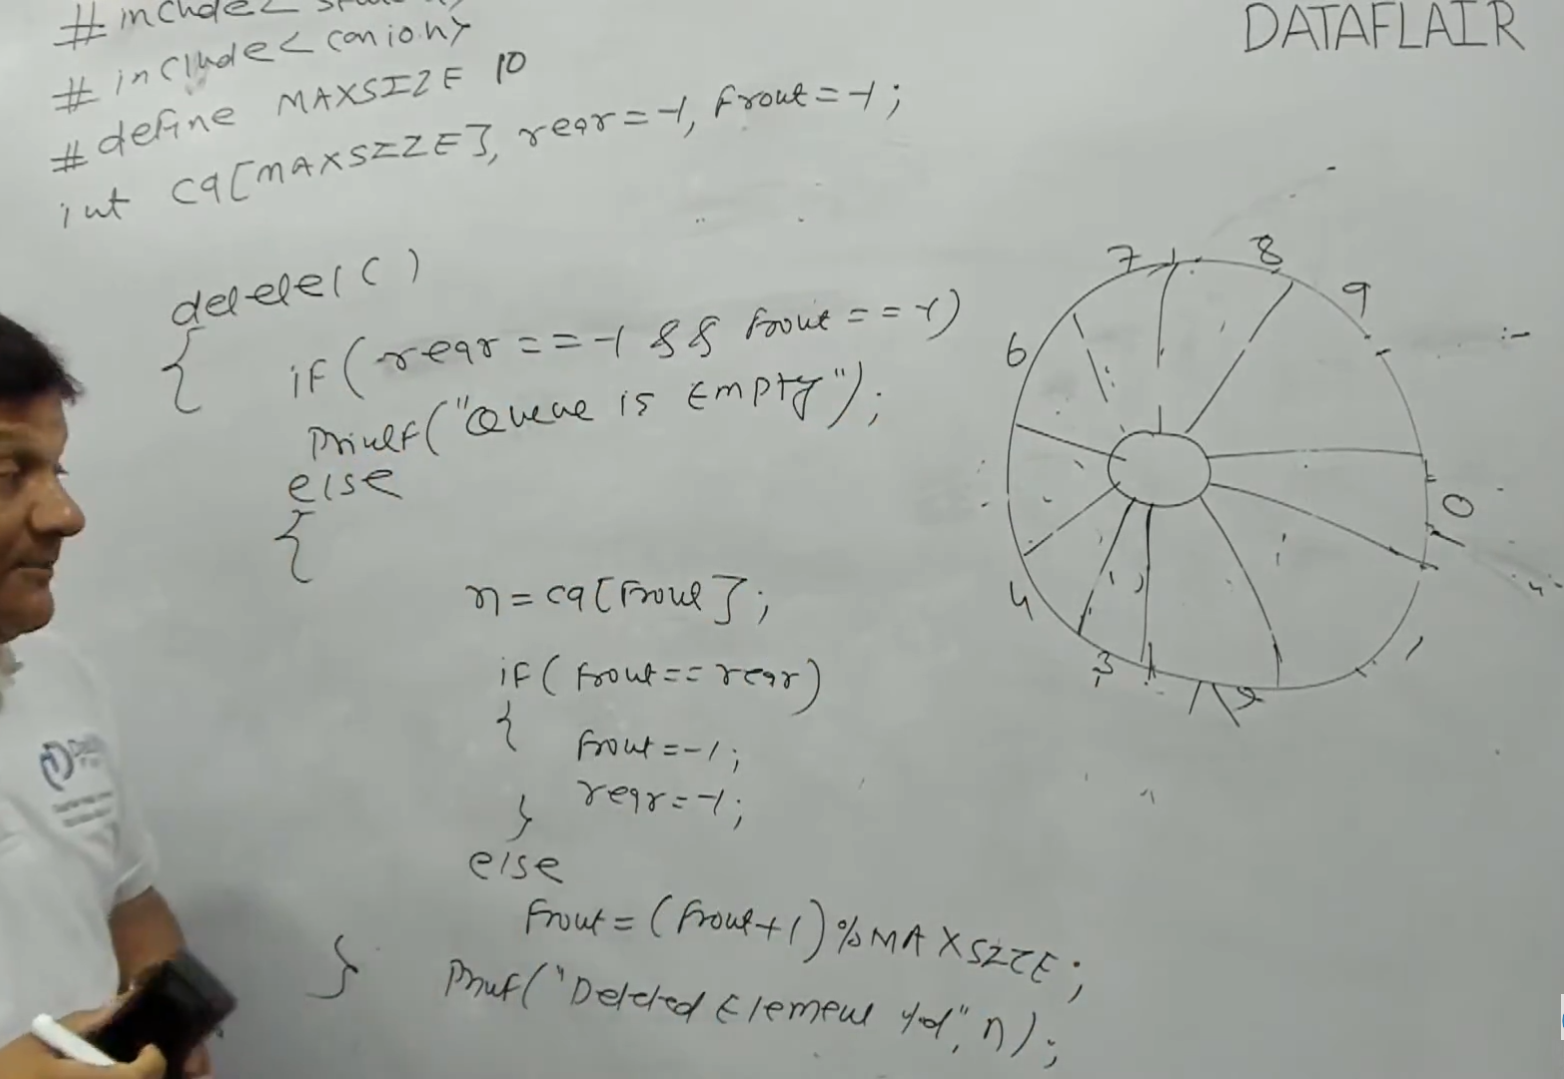 # include<
# include<conio.h>
# define MAXSIZE 10
int cq[MAXSIZE], rear=-1, front=-1;
DATAFLAIR
delete1()
{
if(rear==-1 && front==-1)
printf("Queue is Empty");
else
{
n=cq[front];
if(front==rear)
{
front=-1;
rear=-1;
}
else
front=(front+1)%MAXSIZE;
}
printf("Deleted Element %d",n);
7
8
9
6
0
4
1
3
2